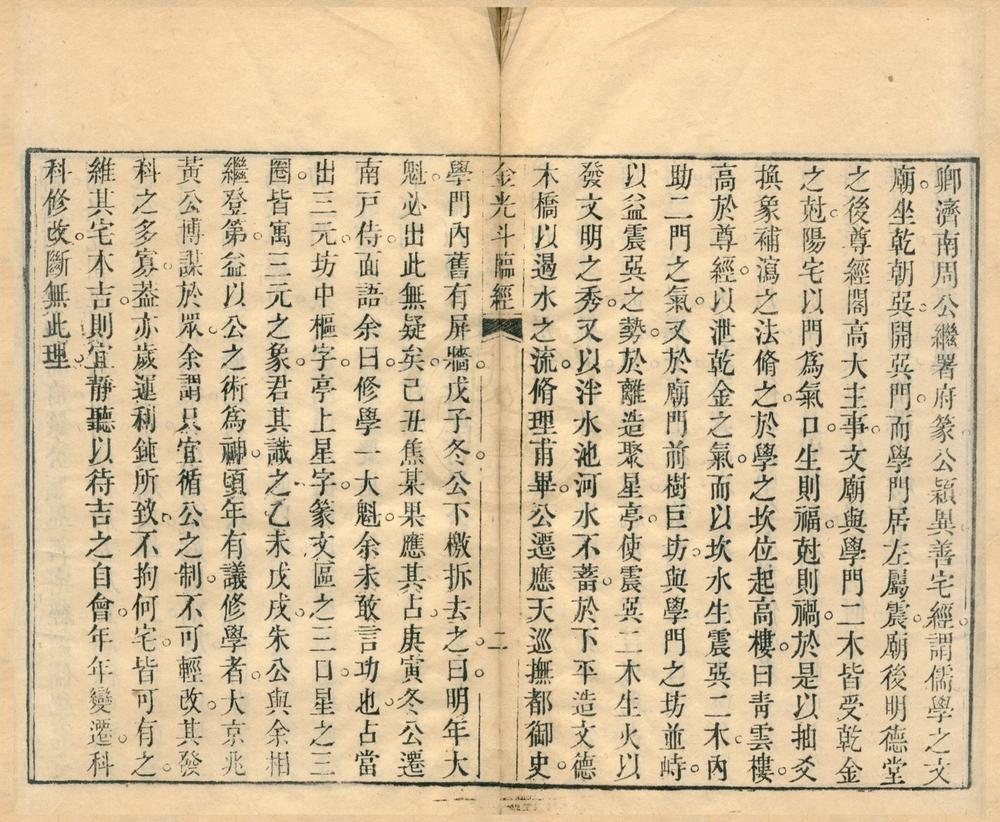 卿濟南周公繼署府篆公穎異善宅經謂儒學之文
廟坐乾朝巽開巽門而學門居左屬震廟後明德堂
之後尊經閣高大主事文廟與學門二木皆受乾金
之尅陽宅以門為氣口生則福尅則禍於是以抽爻
換象補瀉之法脩之於學之坎位起高樓曰青雲樓
高於尊經以泄乾金之氣而以坎水生震巽二木內
助二門之氣又於廟門前樹巨坊與學門之坊並峙
以益震巽之勢於離造聚星亭使震巽二木生火以
發文明之秀又以泮水池河水不蓄於下平造文德
木橋以遏水之流脩理甫畢公遷應天巡撫都御史
金光斗臨經
二
學門內舊有屏牆戊子冬公下檄拆去之曰明年大
魁必出此無疑矣己丑焦某果應其占庚寅冬公遷
南戶侍面語余曰修學一大魁余未敢言功也占當
出三元坊中樞字亭上星字篆文區之三口星之三
圈皆寓三元之象君其識之乙未戊戌朱公與余相
繼登第益以公之術為神頭年有議修學者大京兆
黃公博謀於眾余謂只宜循公之制不可輕改其發
科之多寡葢亦歲運利鈍所致不拘何宅皆可有之
維其宅本吉則宜靜聽以待吉之自會年年變遷科
科修改斷無此理